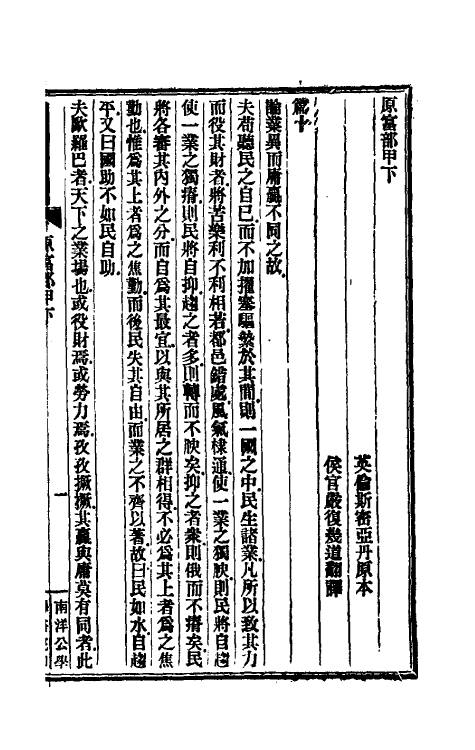 原富部甲下
英倫斯密亞丹原本
侯官嚴復幾道翻譯
篇十
論業異而庸贏不同之故
夫苟聽民之自已而不加擢塞驅縶於其間則一國之中民生諸業凡所以致其力
而役其財者將苦樂利不利相若都邑錯處風氣棣通使一業之獨腴則民將自趨
使一業之獨瘠則民將自抑趨之者多則轉而不腴矣抑之者衆則俄而不瘠矣民
將各審其內外之分而自爲其最宜以與其所居之群相得不必爲其上者爲之焦
勤也惟爲其上者爲之焦勤而後民失其自由而業之不齊以著故曰民如水自趨
平又曰國助不如民自助
夫歐羅巴者天下之業場也或役財焉或勞力焉孜孜撅撅其贏與庸莫有同者此
原富部甲下
一
南洋公學